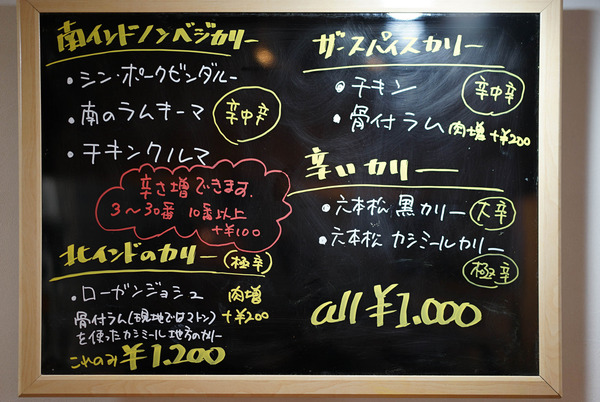 南インドノンベジカリー
・シン・ポークビンダルー
・南のラムキーマ 辛中辛
・チキンクルマ
辛さ増できます。
3〜30番 10番以上
+¥100
北インドのカリー 極辛
・ローガンジョシュ 肉増
+¥200
骨付ラム(現地ではマトン)
を使ったカシミール地方のカリー
これのみ ¥1,200
ザ・スパイスカリー
・チキン 辛中辛
・骨付ラム 肉増 +¥200
辛いカリー
・六本松 黒カリー 大辛
・六本松 カシミールカリー
極辛
all ¥1.000